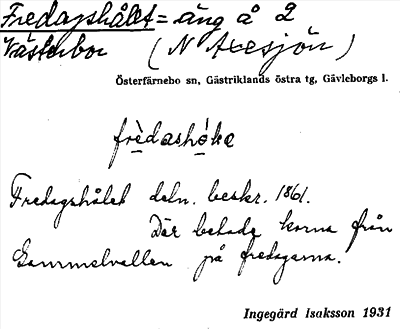 Fredagshålet = äng å 2
Västerbor (N Axesjön)
Österfärnebo sn, Gästriklands östra tg, Gävleborgs l.
frèdashó̱ḷe
Fredagshålet deln. beskr. 1861.
Där betade korna från
Gammelvallen på fredagarna.
Ingegärd Isaksson 1931